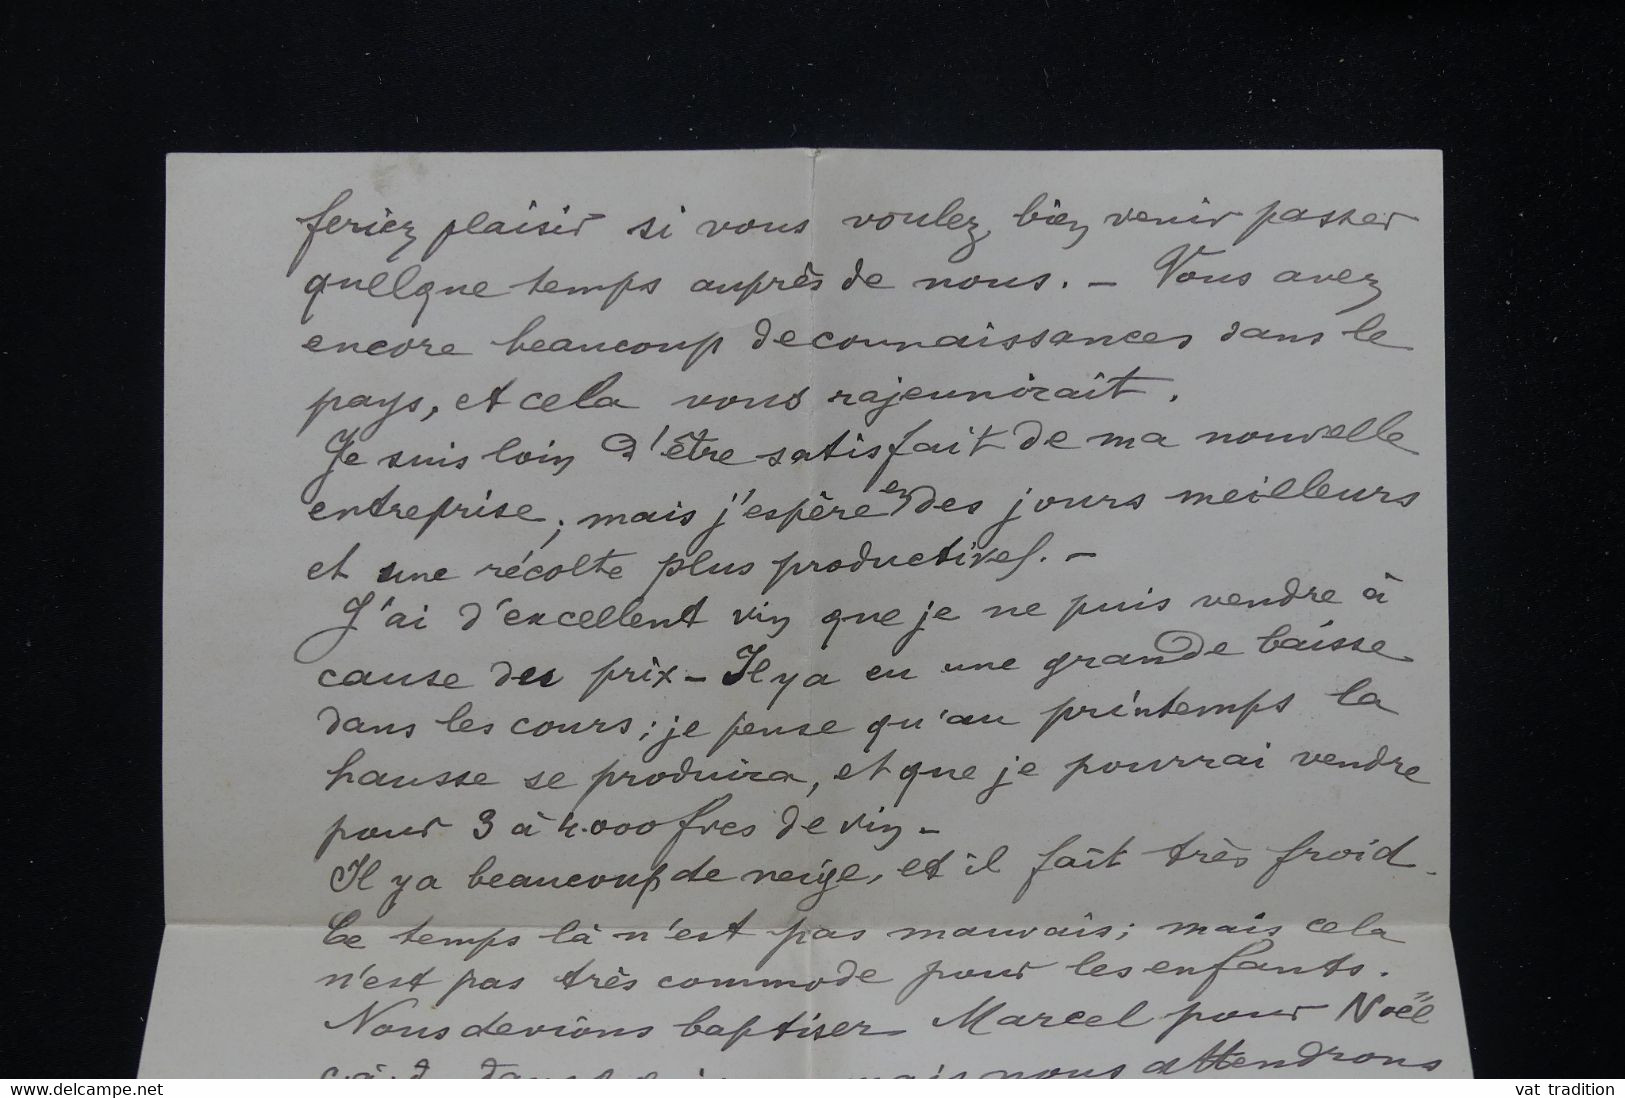 feriez plaisir si vous voulez bien venir passer
quelque temps auprès de nous. – Vous avez
encore beaucoup de connaissances dans le
pays, et cela vous rajeunirait.
Je suis loin d'être satisfait de ma nouvelle
entreprise; mais j'espère en des jours meilleurs
et une récolte plus productive. –
J'ai d'excellent vin que je ne puis vendre à
cause des prix – Il y a eu une grande baisse
dans les cours; je pense qu'au printemps la
hausse se produira, et que je pourrai vendre
pour 3 à 4.000 frcs de vin –
Il y a beaucoup de neige, et il fait très froid.
Ce temps là n'est pas mauvais; mais cela
n'est pas très commode pour les enfants.
Nous devions baptiser Marcel pour Noël
c.à.d. mais nous attendrons
delcampe.net
vat tradition